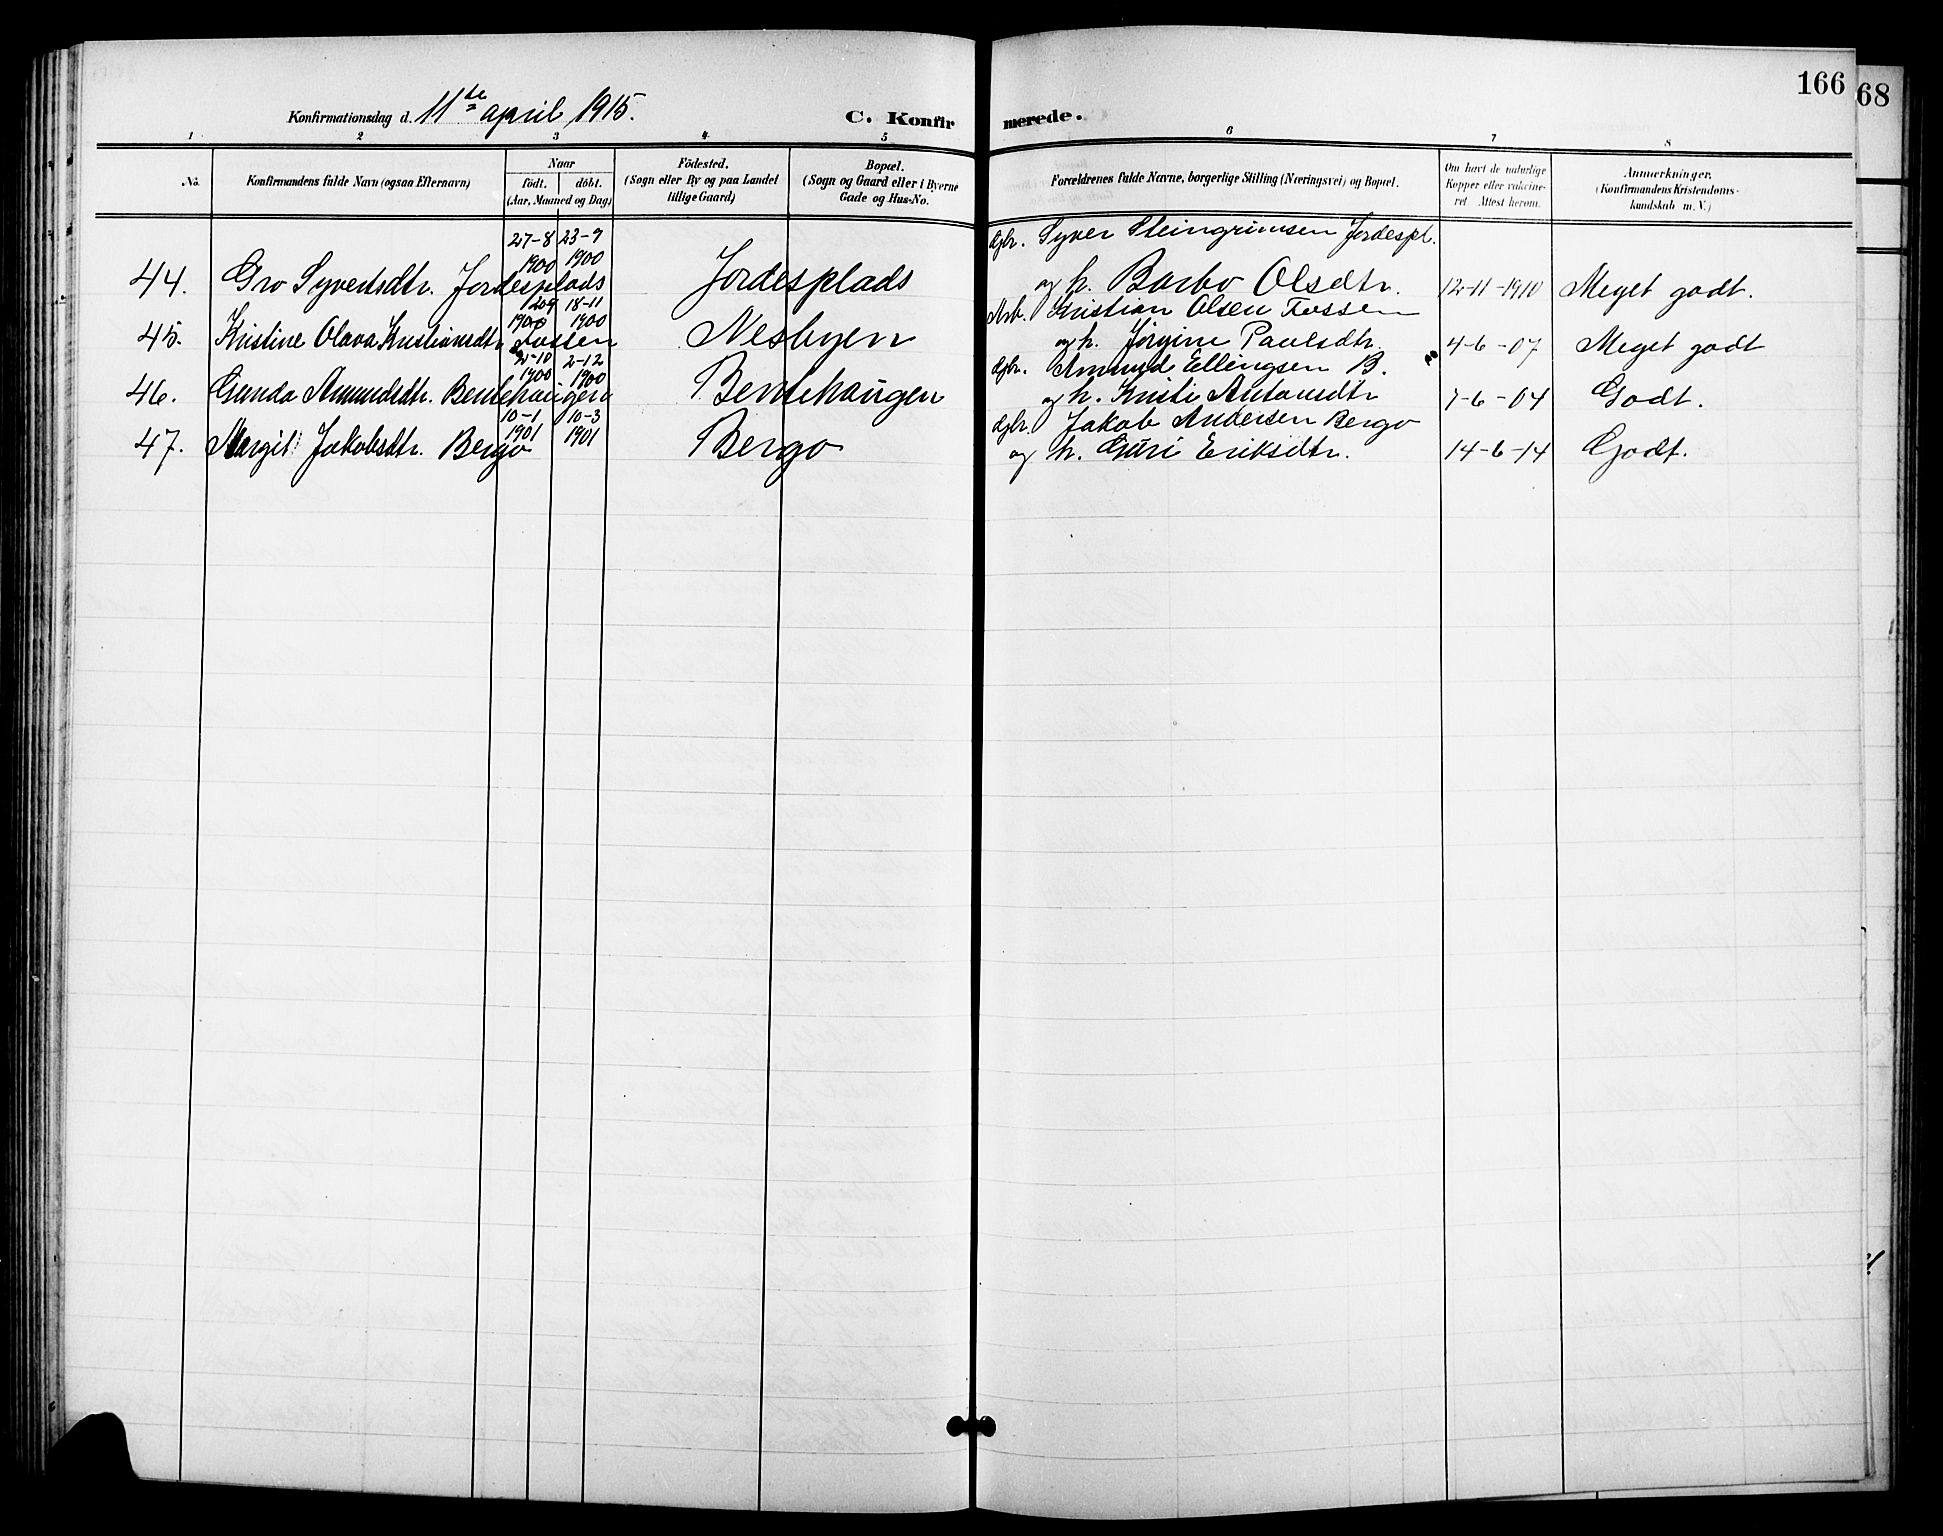 166
68
Konfirmationsdag d. 11te april 1915.
C. Konfirmerede.
1 2 3 4 5 6 7 8
No. Konfirmandens fulde Navn (ogsaa Efternavn) Naar födt. döbt. (Aar, Maaned og Dag) Födested. (Sogn eller By og paa Landet tillige Gaard) Bopæl. (Sogn og Gaard eller i Byerne Gade og Hus-No. Forældrenes fulde Navne, borgerlige Stilling (Næringsvei) og Bopæl. Om havt de naturlige Kopper eller vakcineret Attest herom. Anmærkninger. (Konfirmandens Kristendomskundskab m. V.)
27-8 23-9 Gbr. Syver Steingrimsen Jordespl.
1900 1900
44. Gro Syvertsdtr. Jordesplads Jordesplads og h. Barbo Olsdtr. 12-11-1910 Meget godt.
18-11 Arb. Kristian Olsen Fossen
1900 1900
45. Kristine Olava Kristiansdtr. Fossen Nesbyen og h. Jørgine Paulsdtr. 4-6-07 Meget godt
25-10 2-12 Gbr. Amund Ellingsen B.
1900 1900
46. Gunda Amundsdtr. Bentehaugen Bentehaugen og h. Kristi Antonsdtr 7-6-04 Godt.
10-1 10-3 Gbr. Jakob Andersen Bergo
1901 1901
47. Margit Jakobsdtr. Bergo Bergo og h. Guri Eriksdtr. 14-6-14 Godt.